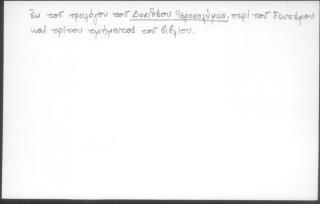 ἐκ τοῦ προλόγου τοῦ Δοσιθέου Ἱεροσολύμων, περὶ τοῦ δευτέρου
καὶ τρίτου τμήματος τοῦ βιβλίου.